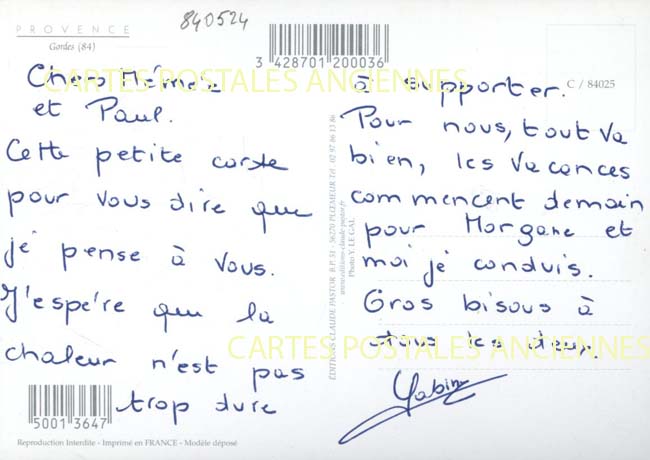 PROVENCE
Gordes (84)
840524
3 428701 200036
C / 84025
CARTES POSTALES ANCIENNES
Chers Mémé
et Paul.
Cette petite carte
pour vous dire que
je pense à vous.
J'espère que la
chaleur n'est pas
trop dure
à supporter.
Pour nous, tout va
bien, les vacances
commencent demain
pour Morgane et
moi je conduis.
Gros bisous à
tous les deux.
CARTES POSTALES ANCIENNES
EDITIONS CLAUDE PASTOR B.P. 51 - 56270 PLOEMEUR Tél : 02 97 86 13 86
www.editions-claude-pastor.fr
Photo Y. LE GAL
5001 3647
Reproduction Interdite - Imprimé en FRANCE - Modèle déposé